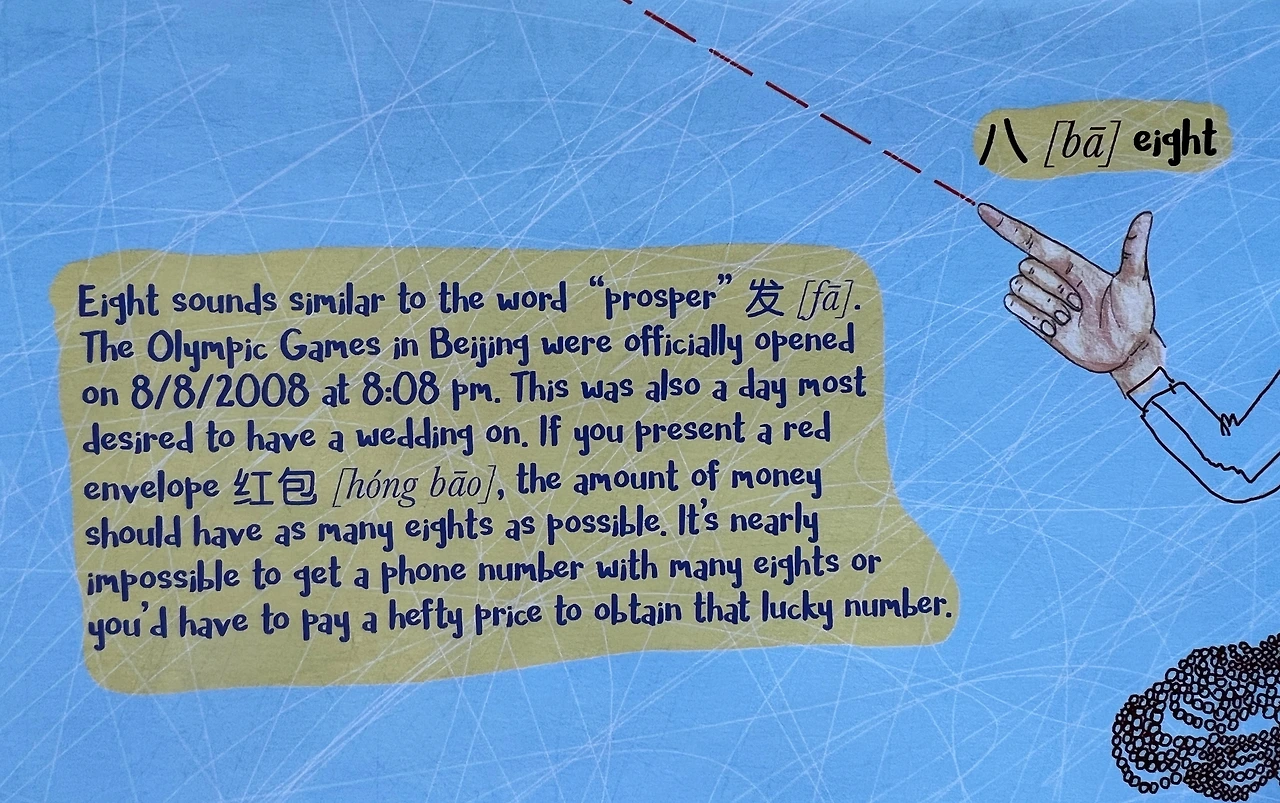 八 [bā] eight
Eight sounds similar to the word “prosper” 发 [fā].
The Olympic Games in Beijing were officially opened
on 8/8/2008 at 8:08 pm. This was also a day most
desired to have a wedding on. If you present a red
envelope 红包 [hóng bāo], the amount of money
should have as many eights as possible. It's nearly
impossible to get a phone number with many eights or
you'd have to pay a hefty price to obtain that lucky number.